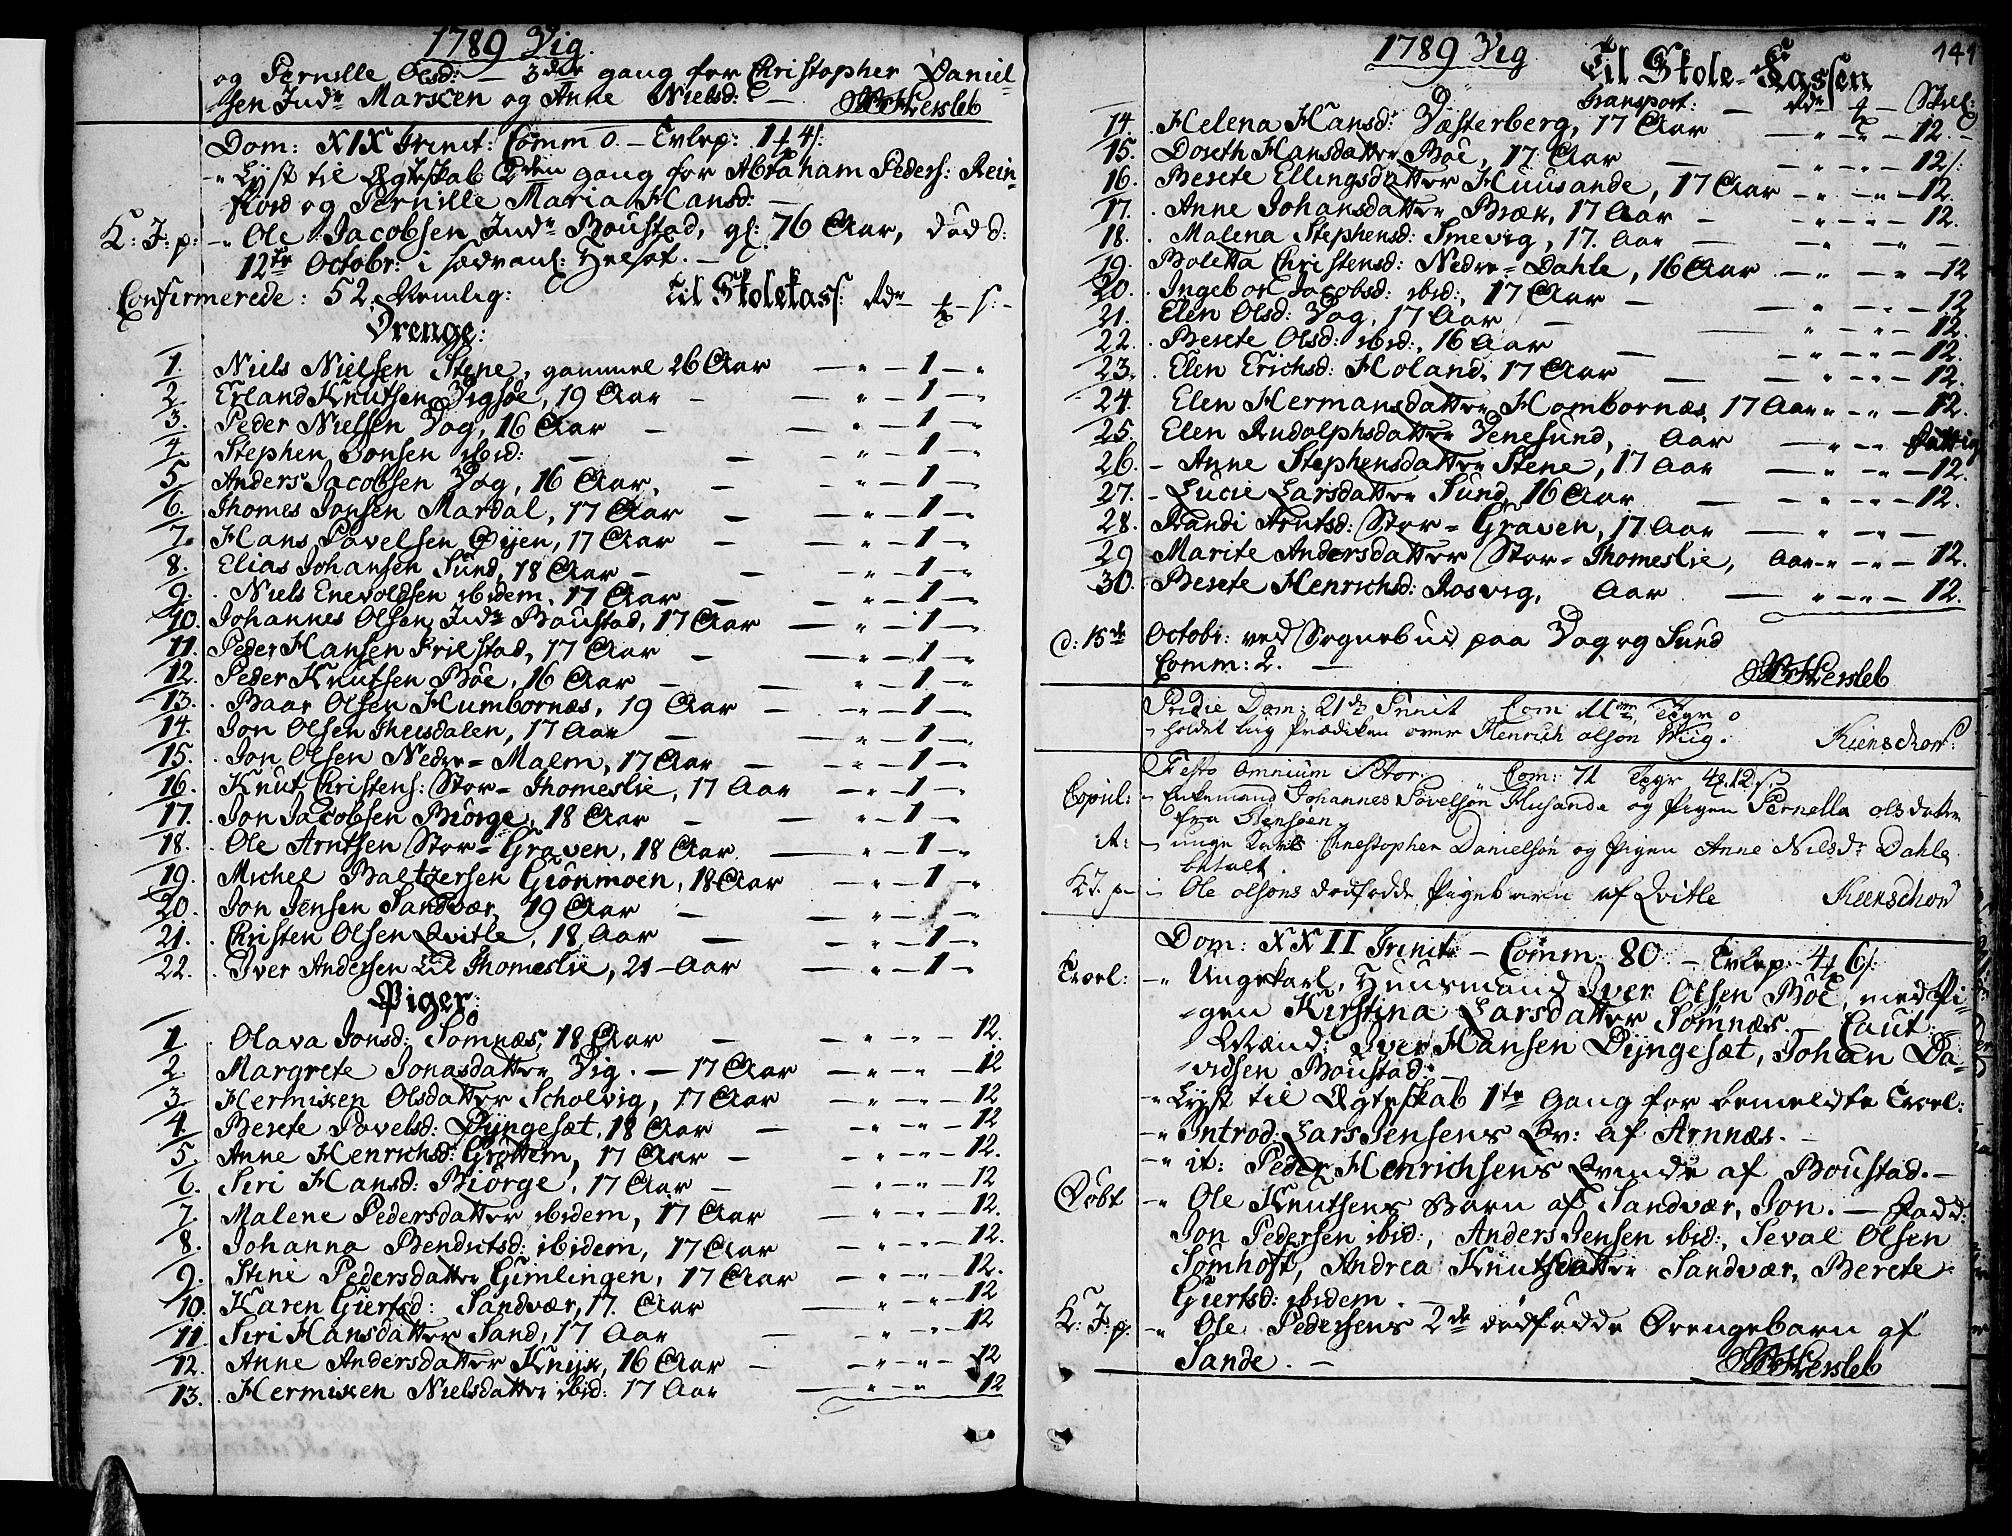 1789 Vig.
og Pernille Olsd: — 3die gang for Christopher Daniel-
sen Indr Marken og Anne Nielsd: —
Hersleb
Dom: XIX Trinit: Comm 0. — Tvlep: 1 4 s.
-" Lyst til Ægteskab 2den gang for Abraham Peders: Rein-
fiord og Pernille Maria Hansd: —
K: J: p: -" Ole Jacobsen Indr Boustad, gl: 76 Aar, død d:
12te Octobr: i sædvanl: Helsot. —
Confirmerede: 52. Nemlig: Til Skolekass: Rdr — — s: -
Drenge:
1. Niels Nielsen Stene, gammel 26 Aar — " — 1 — "
2. Erland Knutsen Vigsøe, 19 Aar — " — 1 — "
3. Peder Nielsen Vog, 16 Aar — " — 1 — "
4. Stephen Jonsen ibid: — " — 1 — "
5. Anders Jacobsen Vog, 16 Aar, — " — 1 — "
6. Thomes Jonsen Mardal, 17 Aar — " — 1 — "
7. Hans Povelsen Øijen, 17 Aar — " — 1 — "
8. Elias Johansen Sund, 18 Aar — " — 1 — "
9. Niels Enevoldsen ibidem, 17 Aar — " — 1 — "
10. Johannes Olsen Indr Boustad, 17 Aar — " — 1 — "
11. Peder Hansen Frilstad, 17 Aar — " — 1 — "
12. Peder Knutsen Bøe, 16 Aar — " — 1 — "
13. Baar Olsen Humbornæs, 19 Aar — " — 1 — "
14. Jon Olsen Theisdalen, 17 Aar — " — 1 — "
15. Jon Olsen Nedre=Malm, 17 Aar — " — 1 — "
16. Knut Christens: Stor=Thomeslie, 17 Aar — " — 1 — "
17. Jon Jacobsen Biørge, 18 Aar — " — 1 — "
18. Ole Arntsen Stor=Graven, 18 Aar — " — 1 — "
19. Michel Baltzersen Giønmoen, 18 Aar — " — 1 — "
20. Jon Jensen Sandvær, 19 Aar — " — 1 — "
21. Christen Olsen Qvitle, 18 Aar — " — 1 — "
22. Iver Andersen Lil Thomeslie, 21 Aar — " — 1 — "
Piger:
1. Olava Jonsd: Sømnæs, 18 Aar — " — " — 12.
2. Margrete Jonasdatter Vig. — 17 Aar — " — " — 12
3. Hermiken Olsdatter Scholvig, 17 Aar — " — " — 12
4. Berete Povelsd: Dyngesæt, 18 Aar — " — " — 12
5. Anne Henrichsd: Grøttem, 17 Aar — " — " — 12.
6. Siri Hansd: Biørge, 17 Aar — " — " — 12
7. Malene Pedersdatter ibidem, 17 Aar — " — " — 12.
8. Johanna Bendictsd: ibidem, 17 Aar — " — " — 12.
9. Stine Pedersdatter Gimlingen, 17 Aar — " — " — 12.
10. Karen Giertsd: Sandvær, 17. Aar — " — " — 12
11. Siri Hansdatter Sand, 17 Aar — " — " — 12
12. Anne Andersdatter Knyk, 16 Aar — " — " — 12
13. Hermiken Nielsdatter ibid: 17 Aar — " — " — 12
1789 Vig Til Skole-Cassen 141
Transport: — Rdr — Skill:
14. Helena Hansd: Væsterberg, 17 Aar — " — " — 12. -
15. Doreth Hansdatter Bøe, 17 Aar — " — " — 12 s.
16. Berete Ellingsdatter Huusande, 17 Aar — " — " — 12.
17. Anne Johansdatter Bræk, 17 Aar — " — " — 12.
18. Malena Stephensd: Smevig, 17. Aar — " — " —
19. Boletta Christensd: Nedre=Dahle, 16 Aar — " — " — 12
20. Ingebor Jacobsd: ibid:, 17 Aar — " — " — 12
21. Elen Olsd: Vog, 17 Aar — " — " — 12.
22. Berete Olsd: ibid:, 16 Aar — " — " — 12.
23. Elen Erichsd: Holand, 17 Aar — " — " — 12.
24. Elen Hermansdatter Hombornæs, 17 Aar " — " — 12.
25. Elen Rudolphsdatter Venesund, Aar — " — " fattig
26. - Anne Stephensdatter Stene, 17 Aar — " — " — 12.
27. - Lucie Larsdatter Sund, 16 Aar — " — " — 12.
28. Randi Arntsd: Stor=Graven, 17 Aar — " — " —
29 Marite Andersdatter Stor=Thomeslie, Aar — " — " — 12.
30. Berete Henrichsd: Rosvig, Aar — " — " — 12.
d: 15de Octobr: ved Sognebud paa Vog og Sund
Comm: 2. —
Hersleb
Pridie Dom: 21de Trinit Com Tvgr 0
- holdet Liig Prædiken over Henrich Olson Wiig.
Festo Omnium Sctor: Com: 71 Tvgr 12 s
Copul: - Enkemand Johannes Povelsøn Husande og Pigen Pernella olsdatter
fra Stensøen.
it: - unge Karl Christopher Danielsøn og Pigen Anne Nilsdr Dahle
betalt.
K J p - Ole olsons dødfødde Pigebarn af Qvitle
Dom: XXII Trinit: — Comm: 80 — Tvlep: 4 6 s.
Trol: -" Ungekarl, Huusmand Iver Olsen Bøe, med Pi-
gen Kirstina Larsdatter Sømnæs. — Caut.-
Mænd: Iver Hansen Dyngesæt, Johan Da-
vidsen Boustad: —
-" Lyst til Ægteskab 1te gang for bemeldte Trol:
-" Introd: Lars Jensens Qv: af Arnnæs. -
-" it: Peder Henrichsens Qvinde af Boustad. —
Døbt -" Ole Knutsens Barn af Sandvær, Jon. — Fadd:
Jon Pedersen ibid:, Anders Jensen ibid:, Seval Olsen
Sømhoft, Andrea Knutsdatter Sandvær, Berete
Giertsd: ibidem. —
K: J: p: -" Ole Pedersens 2de dødfødde Drengebarn af
Sande. —
Hersleb